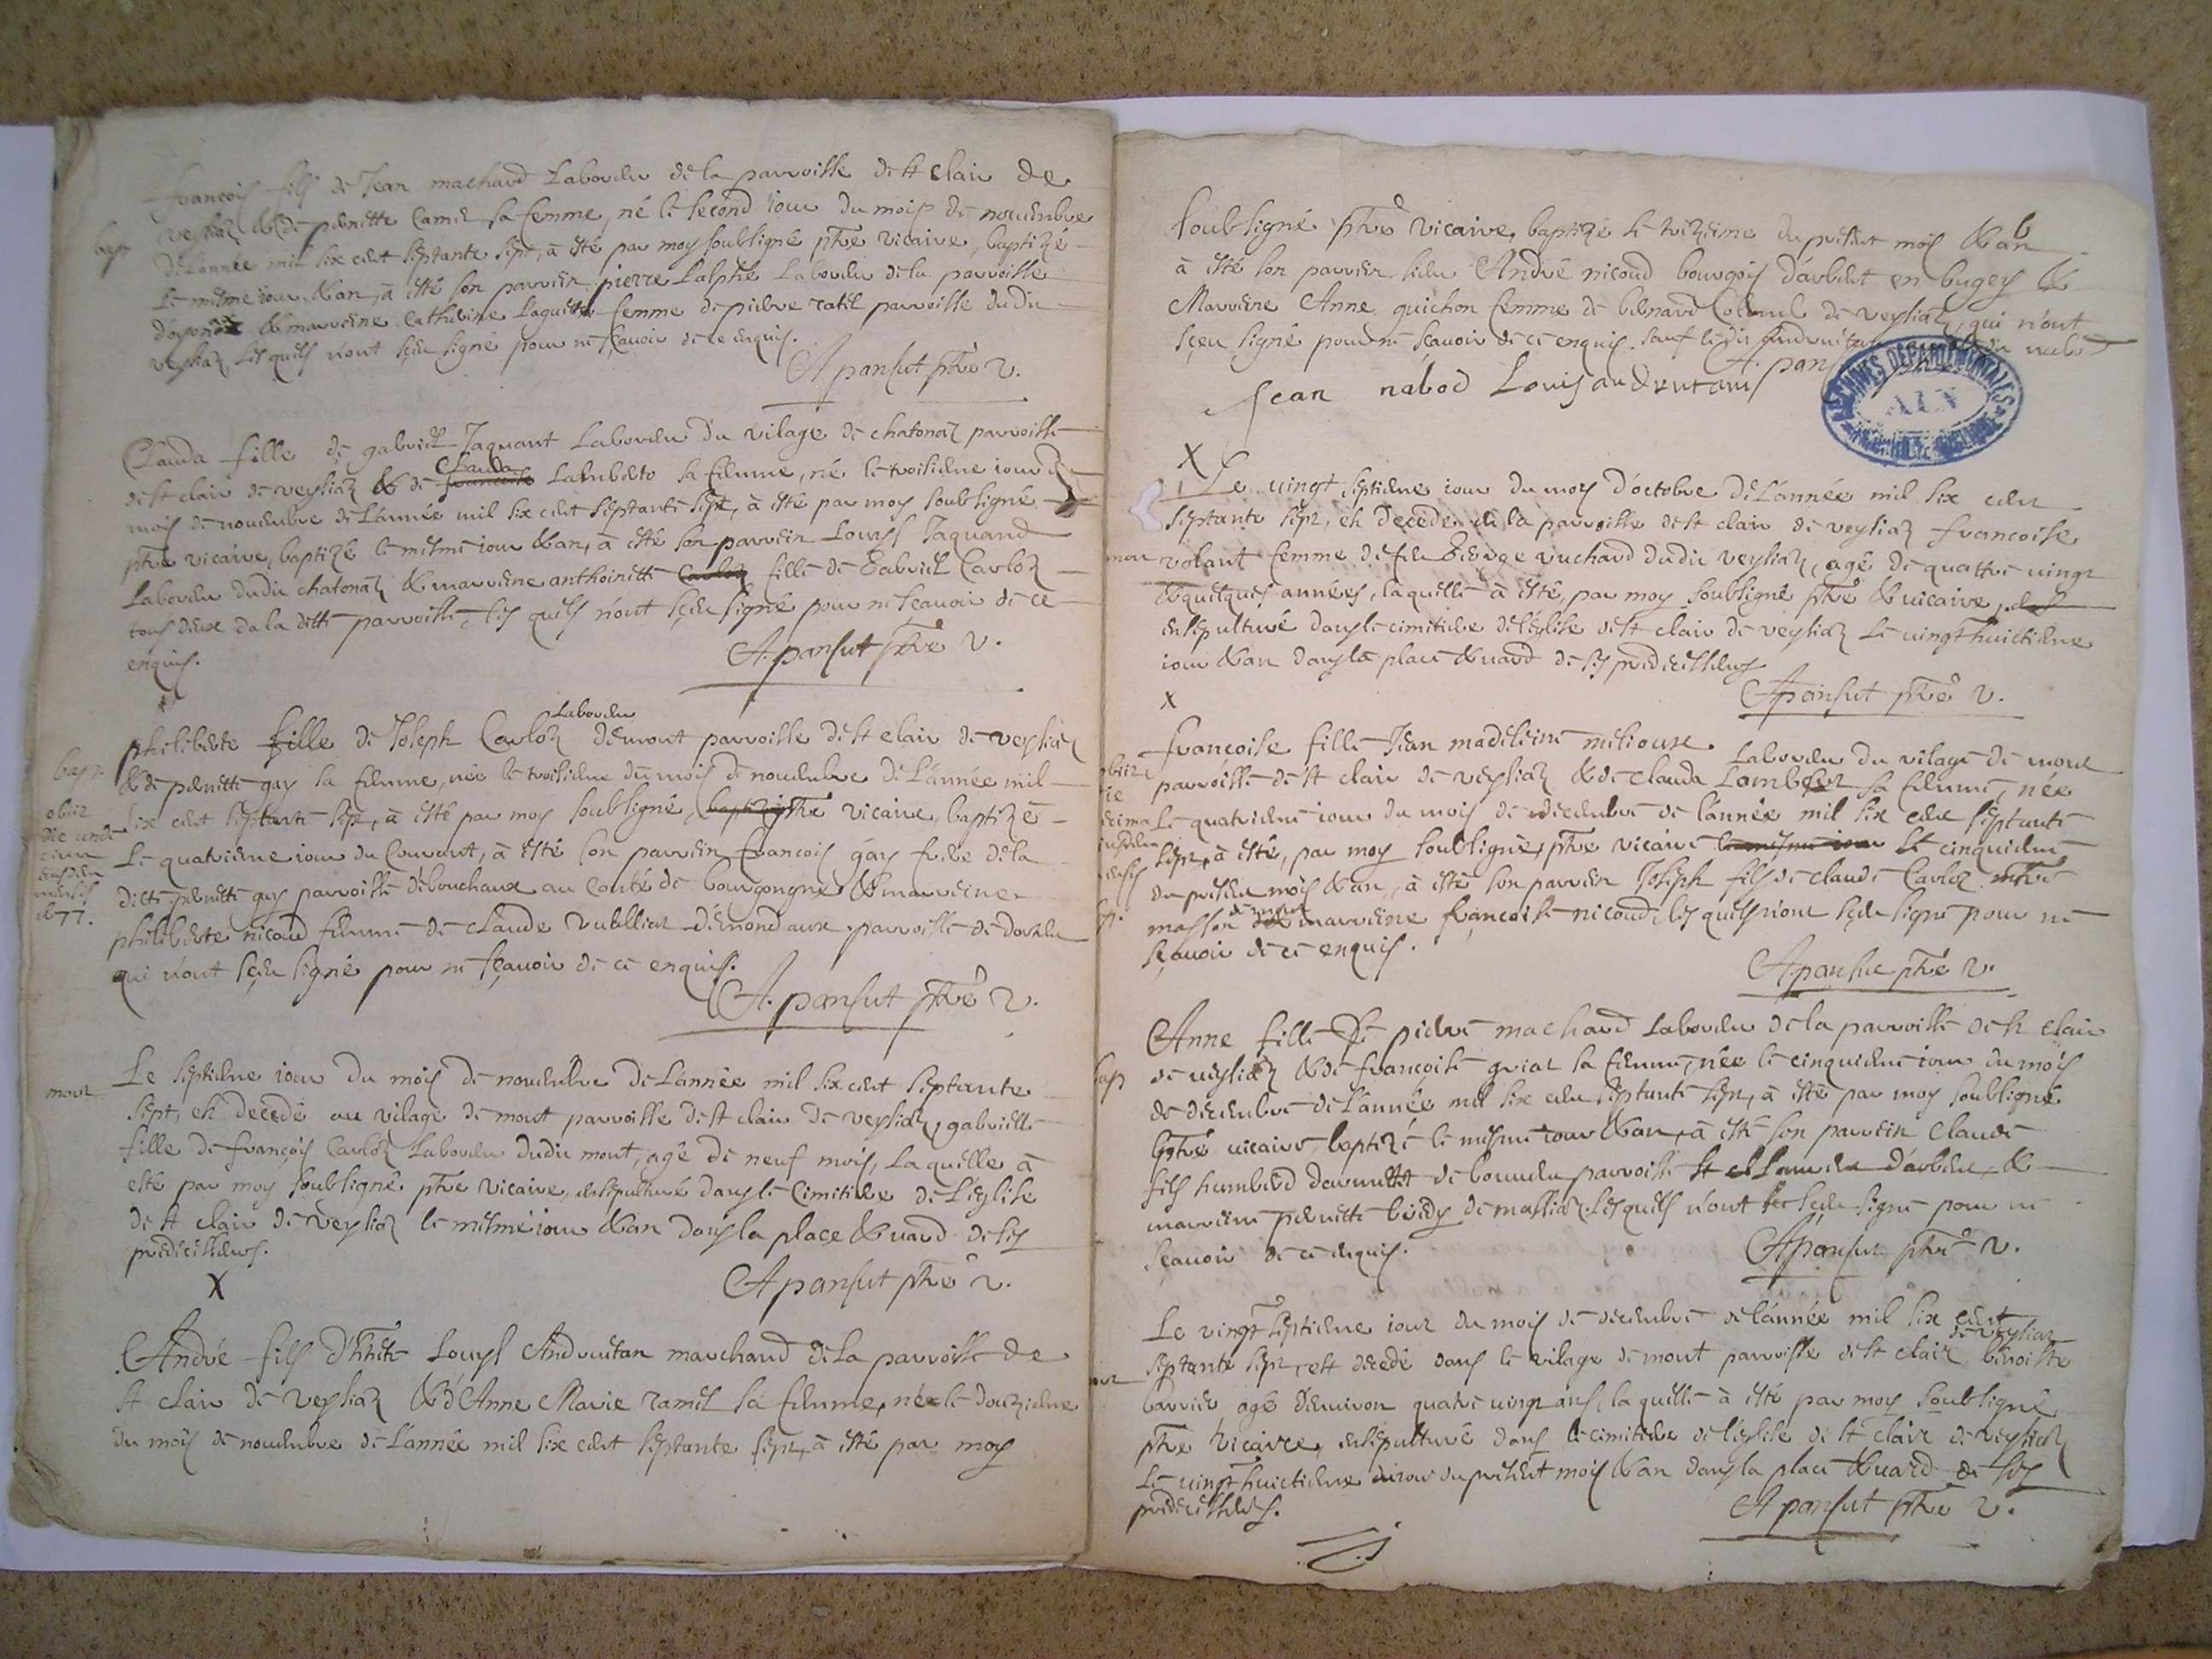 françois fils de Jean machard Laboreur de la parroisse de st clair de
bap veysiaz & de pernette Camel sa femme, né le second iour du mois de nouembre
de L'année mil six cent septante sept, à ésté par moy soubsigné ptre vicaire, baptizé
le mesme iour & an, à ésté son parrein pierre Lalphe Laboreur de la parroisse
d'oyonax & marreine Catherine femme de pierre ratel parroisse dudit
veysiaz, les quels n'ont sçeu signé pour ne sçavoir de ce enquis.
A pansut ptre v.
Clauda fille de gabriel Jaquant Laboreur du vilage de chatonaz parroisse
Clauda
de st clair de veysiaz & de francoise Lamberto sa femme, né le troisieme iour du
mois de nouembre de L'année mil six cent septante sept, à ésté par moy soubsigné
ptre vicaire, baptizé le mesme iour & an, à ésté son parrein Louys Jaquand
Laboreur dudit chatonaz & marreine anthoinette Carloz fille de Gabriel Carloz
tous deux da la ditte parroisse, les quels n'ont sçeu signé pour ne sçavoir de ce
enquis.
A. pansut ptre v.
Laboreur
philiberte fille de Joseph Carloz demont parroisse de st clair de veysiaz
bapt. & de pernette gay sa femme, née le troisieme du mois de nouembre de L'année mil
obiit six cent septante sept, à ésté par moy soubsigné, baptizé ptre vicaire, baptizé
die unde
cima
eiusdem
mensis
1677.
le quatrieme iour du Courant, à ésté son parrein françois gay frere de la
dicte pernette gay parroisse de bouchaux au Conté de bourgongne & marreine
philiberte nicoud femme de claude vuilliat d'émondaux parroisse de dortan
qui n'ont sçeu signé pour ne sçavoir de ce enquis.
A. pansut ptre v.
mort Le septieme iour du mois de nouembre de L'année mil six cent septante
sept, est decedé au vilage de mont parroisse de st clair de veysiaz, gabrielle
fille de françois Carloz Laboreur dudit mont, agé de neuf mois, laquelle à
ésté par moy soubsigné ptre vicaire, ensepulturé dans le Cimitiere de L'eglise
de st clair de veysiaz le mesme iour & an dans la place & uard de ses
predecesseurs.
A pansut ptre v.
X
André fils d'hneste Louys Andruetan marchand de la parroisse de
st clair de veysiaz & d'Anne Marie ramel sa femme, née le douzieme
du mois de nouembre de L'année mil six cent septante sept, à ésté par moy
soubsigné ptre vicaire, baptizé le trezieme du présent mois & an
à ésté son parrein sieur André nicoud bourgois d'arbent en bugey &
Marreine Anne guichon femme de bernard Colomb de veysiaz, qui n'ont
sçeu signé pour ne sçavoir de ce enquis. sauf ledit andruetan
A. pan
Jean nabod Louis andruetan
ARCHIVES DEPARTEMENTALES AIN
X
Le uingt septieme iour du mois d'octobre de L'année mil six cent
septante sept, est decedé de la parroisse de st clair de veysiaz francoise
mort volant femme de feu George vuchard dudit veysiaz, agé de quattre uingt
& quelques années, laquelle à ésté, par moy soubsigné ptre & uicaire,
ensepulturé dans le cimitiere de l'église de st clair de veysiaz le uingt huictieme
iour & an dans la place & uard de ses predecesseurs
A pansut ptre v.
X
françoise fille Jean madeleine melioux Laboreur du vilage de mont
parroisse de st clair de veysiaz & de Clauda Lambert sa femme, née
Le quatrieme iour du mois de decembre de L'année mil six cent septante
sept, à ésté, par moy soubsigné, ptre vicaire le mesme iour le cinquieme
du présent mois & an, à ésté son parrein Joseph fils de claude Carloz
de mont
masson & marreine françoise nicoud, les quels n'ont sçeu signé pour ne
sçavoir de ce enquis.
A pansut ptre v.
Anne fille de pierre machard Laboreur de la parroisse de st clair
bap de veysiaz & de françoise griat sa femme, née le cinquieme iour du mois
de decembre de L'année mil six cent septante sept, à ésté par moy soubsigné
ptre uicaire, baptizé le mesme iour & an, à ésté son parrein Claude
fils humberd de parroisse st d'arbent &
marreine pernette de massiaz. les quels n'ont sçeu signé pour ne
sçavoir de ce enquis.
A pansut ptre v.
Le vingt septieme iour du mois de decembre de L'année mil six cent
de veysiaz
septante sept, est decedé dans le vilage de mont parroisse de st clair, benoiste
barrier agé d'enuiron quatre uingt ans, laquelle à ésté par moy soubsigné
ptre vicaire, ensepulturé dans le cimitiere de l'eglise de st clair de veysiaz
le uingt huictieme iour du présent mois & an dans la place & uard de ses
predecesseurs.
A pansut ptre v.